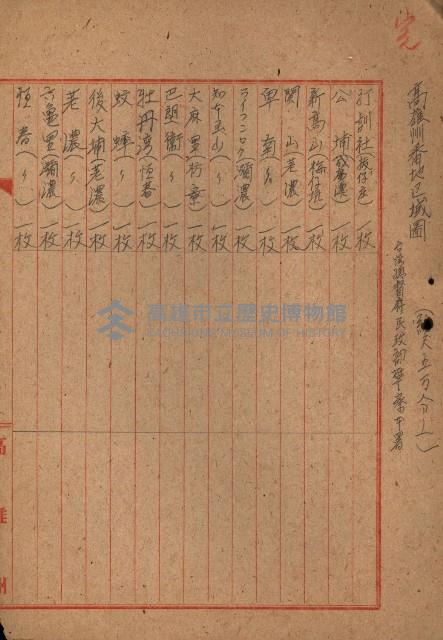 完
高雄州番地区域圖 (縮尺五万分ノ一)
台湾總督府民政部警察本署
打訓社(坂仔庄) 一枚
公埔(成廣澳) 一枚
新高山(梅仔坑) 一枚
関山(老濃) 一枚
卑南(〃) 一枚
ライフンロク(彌濃) 一枚
知本主山(〃) 一枚
大麻里(枋寮) 一枚
巴朗衛(〃) 一枚
牡丹湾(恒春) 一枚
蚊蟀(〃) 一枚
後大埔(老濃) 一枚
老濃(〃) 一枚
六亀里(彌濃) 一枚
恒春(〃) 一枚
高雄州
高雄市立歷史博物館
KAOHSIUNG MUSEUM OF HISTORY